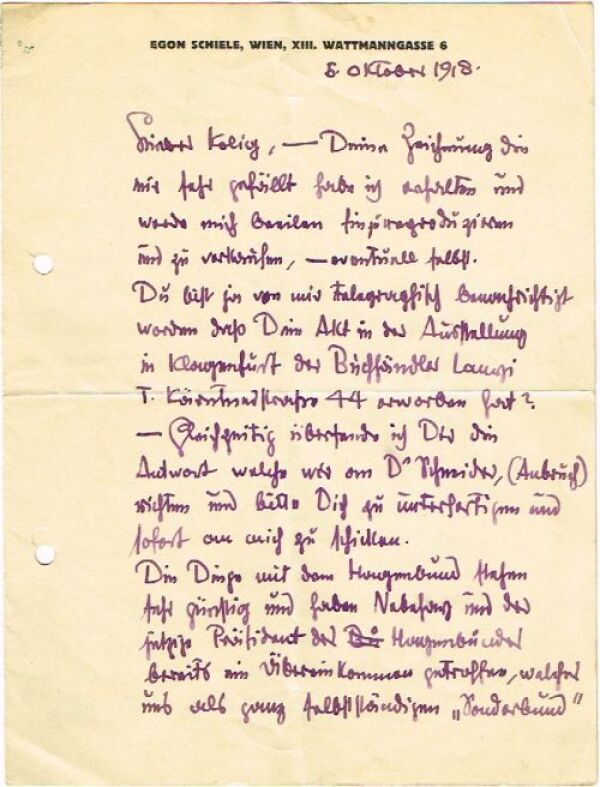 EGON SCHIELE, WIEN, XIII. WATTMANNGASSE 6
5. Oktober 1918.
Lieber Kolig, — Deine Zeichnung die
mir sehr gefällt habe ich erhalten und
werde mich beeilen sie zu reproduzieren
und zu verkaufen, — eventuell selbst.
Du bist ja von mir telegraphisch benachrichtigt
worden daß Dein Akt in der Ausstellung
in Klagenfurt der Buchhändler Lanyi
I. Kärntnerstraße 44 erworben hat?
— Gleichzeitig übersende ich Dir die
Antwort welche wir an Dr Schneider, (Anbruch)
richten und bitte Dich zu unterfertigen und
sofort an mich zu schicken.
Die Dinge mit dem Hagenbund stehen
sehr günstig und haben Nebehay und der
jetzige Präsident der Hagenbünder
bereits ein Übereinkommen getroffen, welches
uns als ganz selbstständigen „Sonderbund"